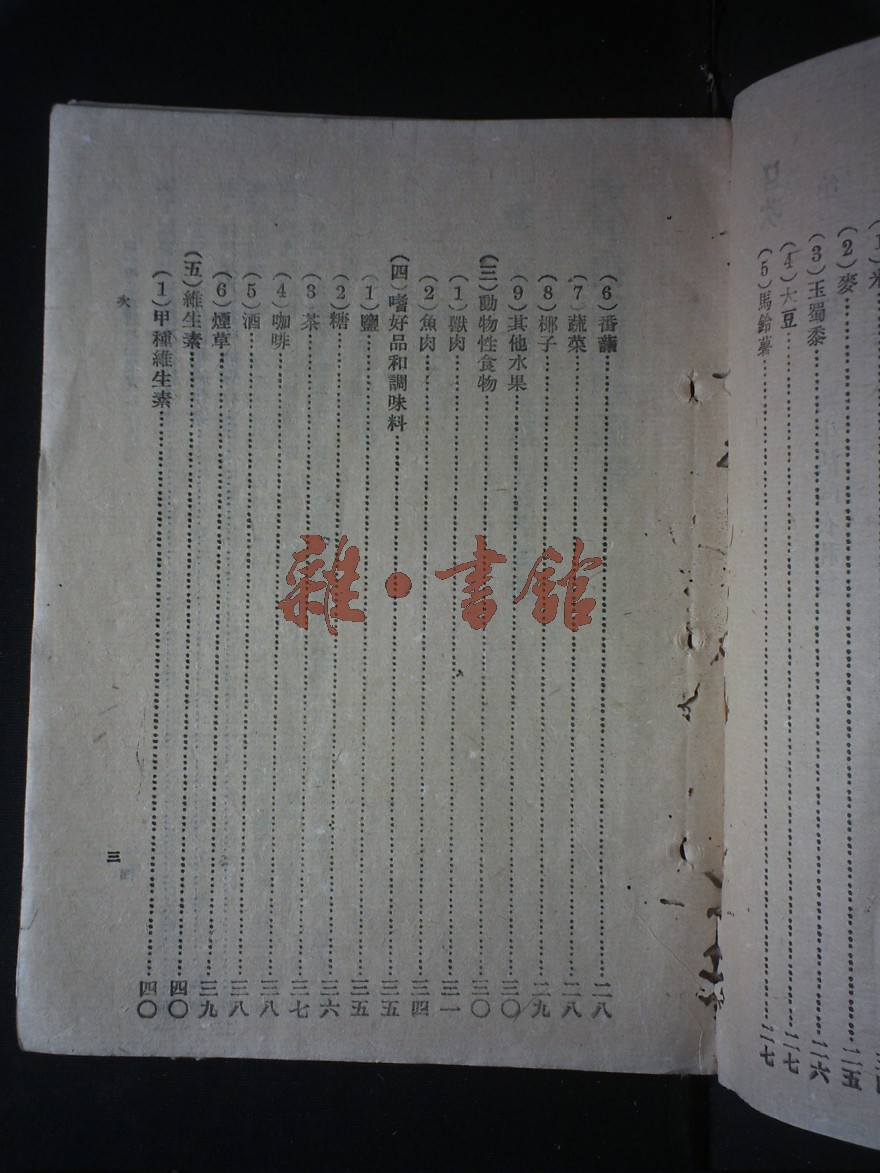 (2)麥……二五
(3)玉蜀黍……二六
(4)大豆……二七
(5)馬鈴薯……二七
(6)番藷……二八
(7)蔬菜……二八
(8)椰子……二九
(9)其他水果……三〇
(三)動物性食物……三〇
(1)獸肉……三一
(2)魚肉……三四
(四)嗜好品和調味料……三五
(1)鹽……三五
(2)糖……三六
(3)茶……三七
(4)咖啡……三八
(5)酒……三八
(6)煙草……三九
(五)維生素……四〇
(1)甲種維生素……四〇
次
三
雜·書館